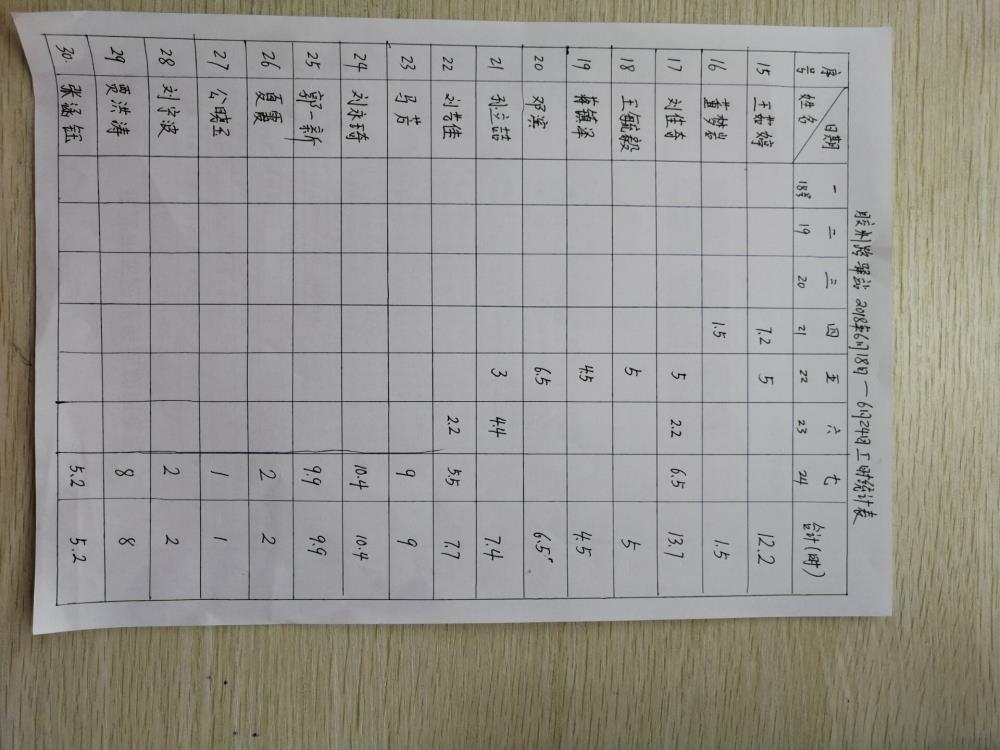 胶州路驿站 2018年6月18日—6月24日工时统计表
序号 姓名 日期 一 18号 二 19 三 20 四 21 五 22 六 23 七 24 合计(时)
15 王茹婷 7.2 5 12.2
16 董梦岩 1.5 1.5
17 刘佳奇 5 2.2 6.5 13.7
18 王毓毅 5 5
19 蒋镇泽 4.5 4.5
20 邓滨 6.5 6.5
21 孙立喆 3 4.4 7.4
22 刘书佳 2.2 5.5 7.7
23 马芳 9 9
24 刘永琦 10.4 10.4
25 郭一新 9.9 9.9
26 夏霞 2 2
27 公晓玉 1 1
28 刘宇波 2 2
29 贾洪涛 8 8
30. 张涵钰 5.2 5.2